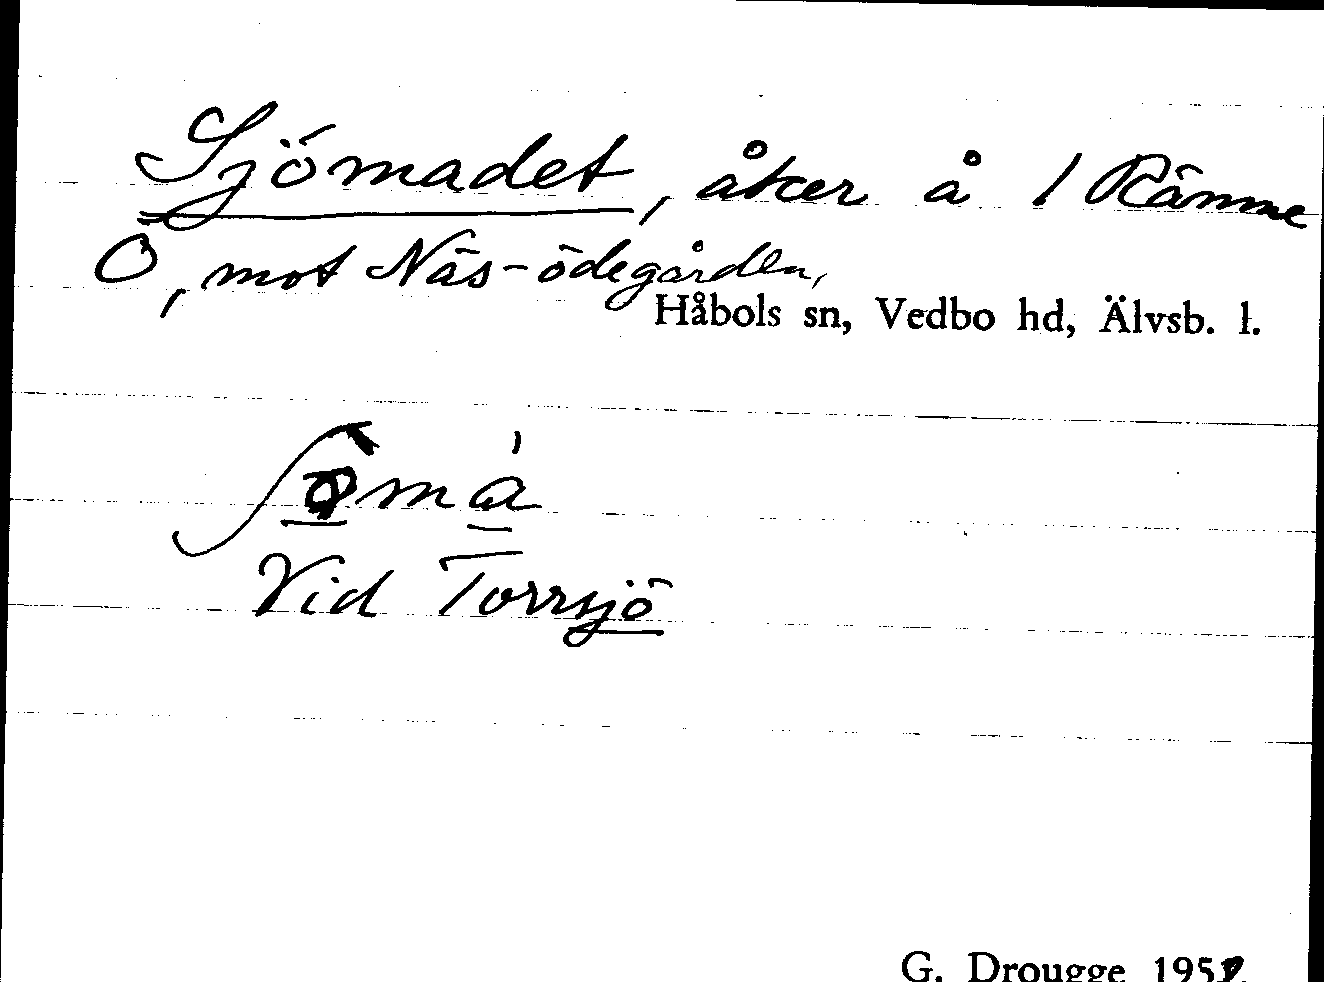 Sjömadet, åker å 1 Rämne
Ö, mot Näs-ödegården,
Håbols sn, Vedbo hd, Älvsb. l.
Vid Torrsjö
G. Drougge 195